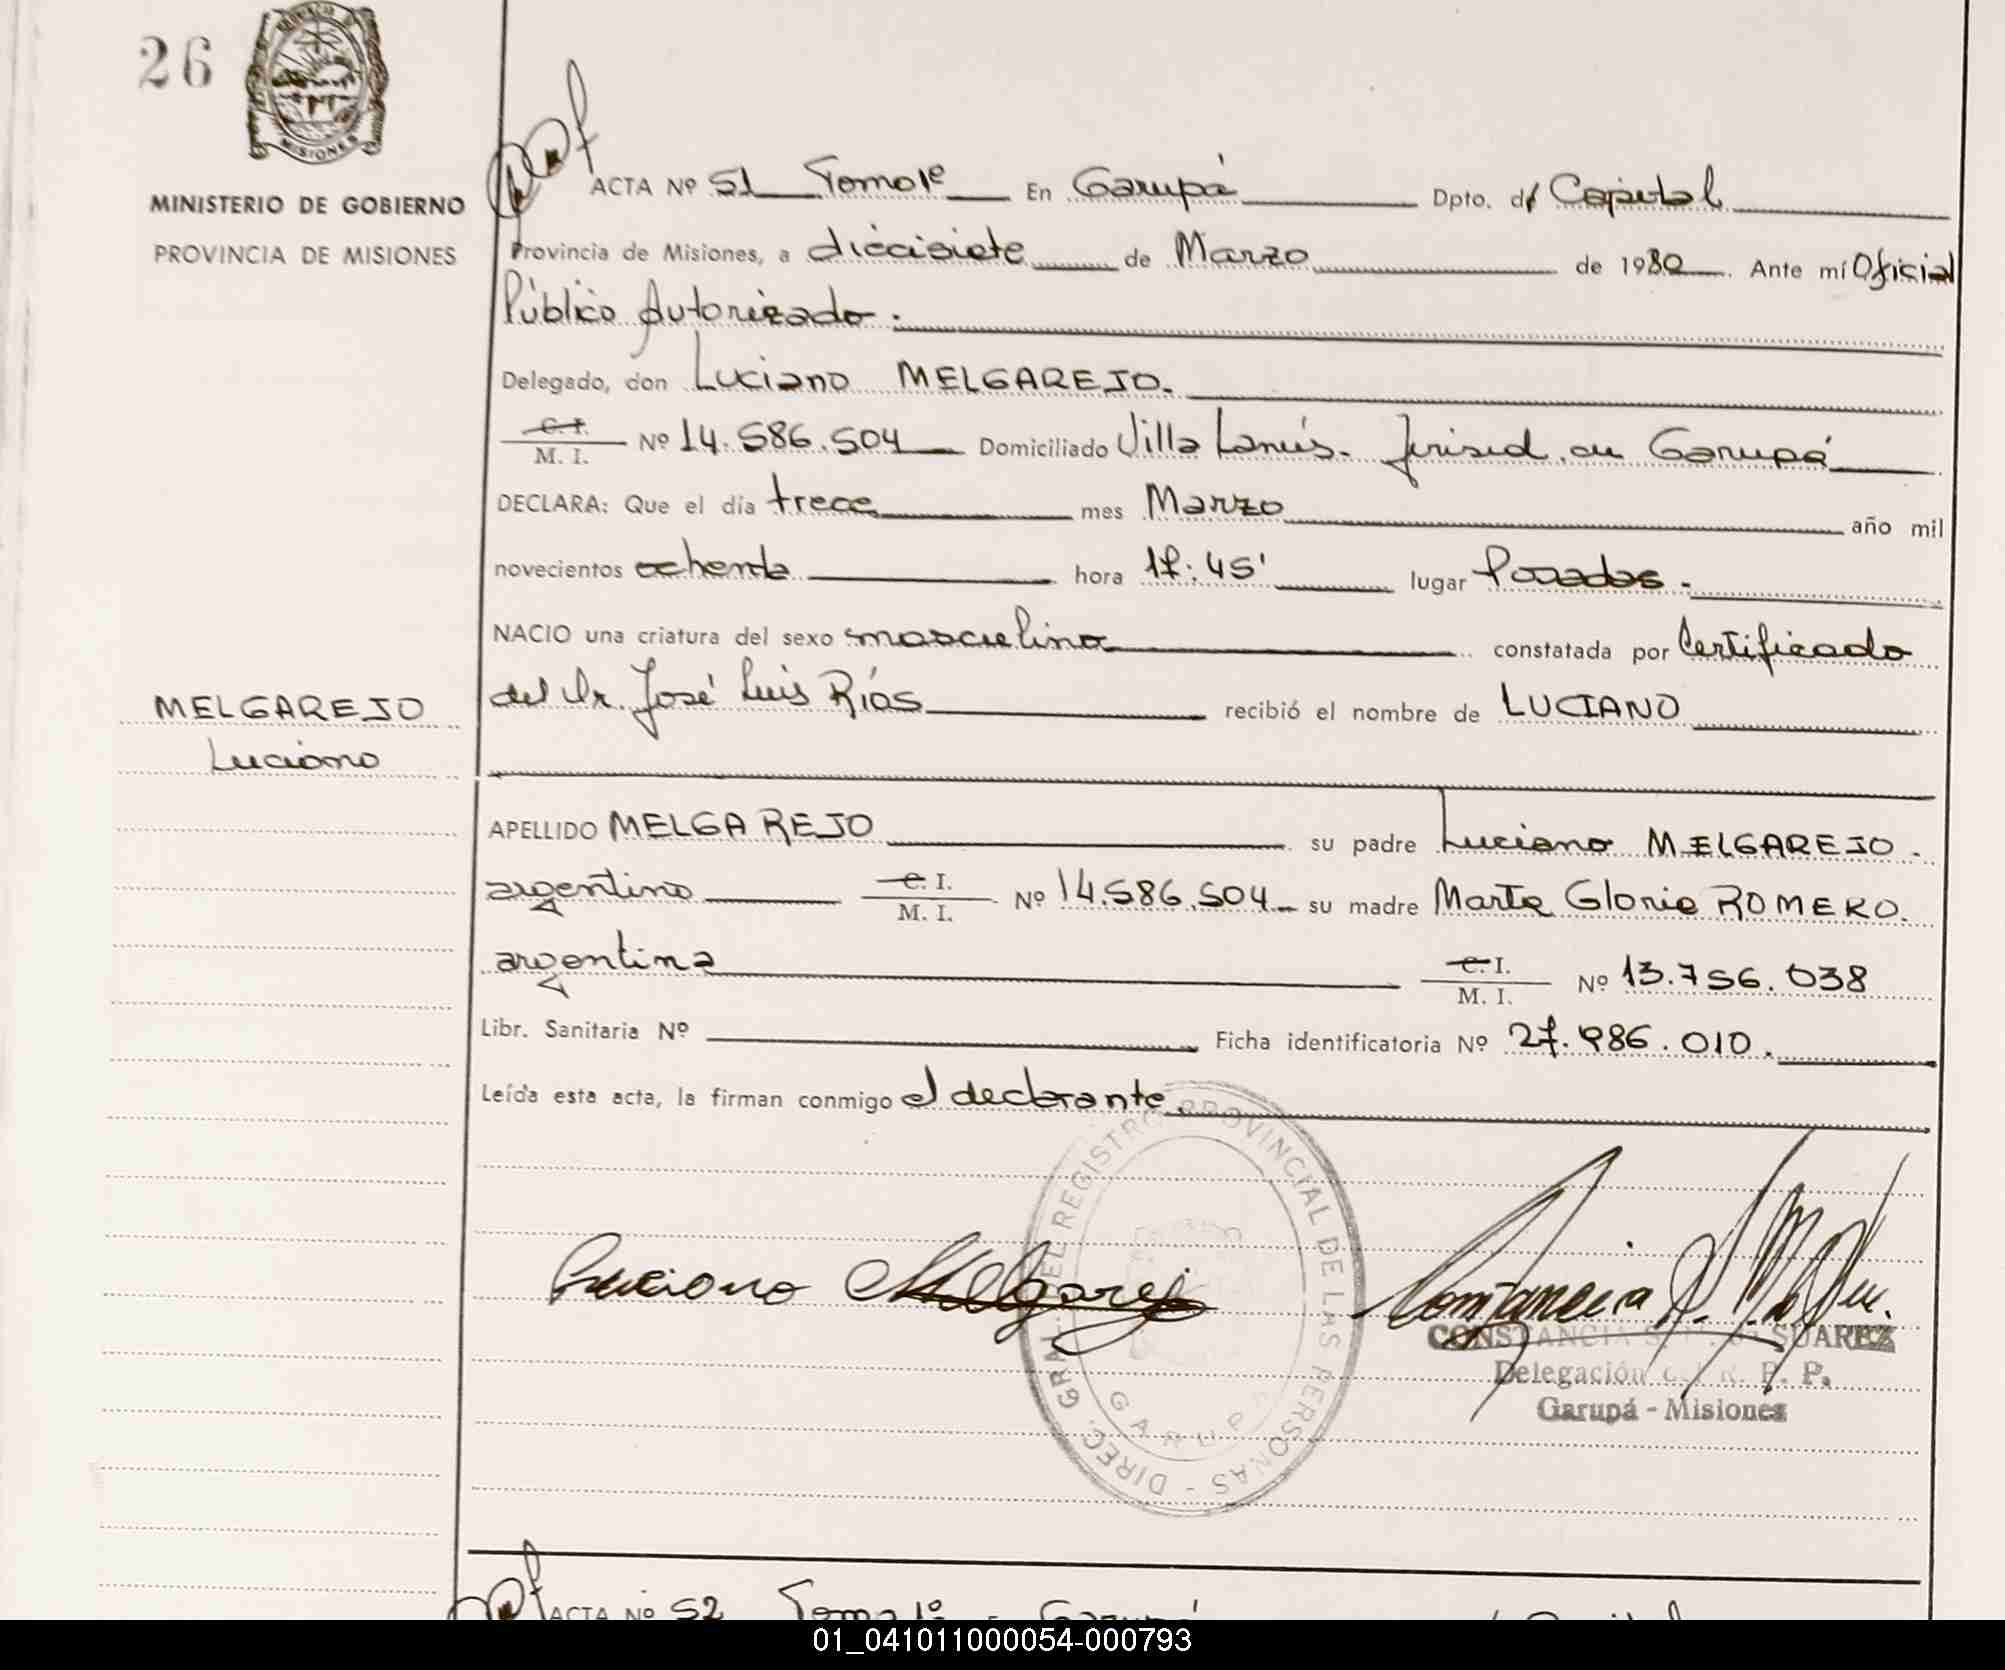 26
MISIONES
MINISTERIO DE GOBIERNO
PROVINCIA DE MISIONES
ACTA Nº 51 Tomo 1º En Garupá Dpto. d Capital
Provincia de Misiones, a diecisiete de Marzo de 1980. Ante mí Oficial
Público Autorizado.
Delegado, don Luciano MELGAREJO.
C. I. M. I. Nº 14.586.504 Domiciliado Villa Lanús. Jurisd. en Garupá
DECLARA: Que el día trece mes Marzo año mil
novecientos ochenta hora 17:45' lugar Posadas.
NACIO una criatura del sexo masculino constatada por Certificado
del Dr. José Luis Ríos recibió el nombre de LUCIANO
MELGAREJO
Luciano
APELLIDO MELGAREJO su padre Luciano MELGAREJO.
argentino C. I. M. I. Nº 14.586.504 su madre Marta Gloria ROMERO.
argentina C. I. M. I. Nº 13.756.038
Libr. Sanitaria Nº Ficha identificatoria Nº 27.986.010.
Leída esta acta, la firman conmigo el declarante.
DIREC. GRAL. DEL REGISTRO PROVINCIAL DE LAS PERSONAS - GARUPA
Luciano Melgarejo
CONSTANCIA SUAREZ
Delegación R. P. P.
Garupá - Misiones
ACTA Nº 52 Tomo 1º Garupá
01_041011000054-000793